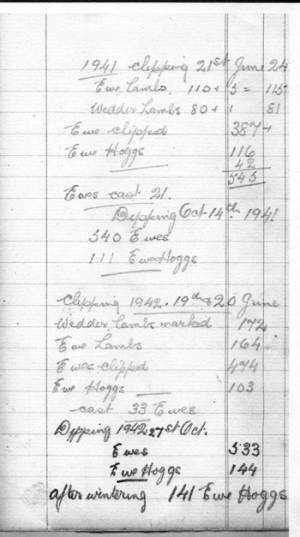 1941 clipping 21st June 24
Ewe Lambs. 110 + 5 = 115
Wedder Lambs 80 + 1 81
Ewe clipped 387 +
Ewe Hoggs 116
42
545
Ewes cast 21.
Dipping Oct 14th 1941
540 Ewes
111 Ewe Hoggs
Clipping 1942. 19th & 20 June
Wedder Lambs marked 172
Ewe Lambs 164
Ewes clipped 474
Ewe Hoggs 103
cast 33 Ewes
Dipping 1942 27st Oct.
Ewes 533
Ewe Hoggs 144
after wintering 141 Ewe Hoggs